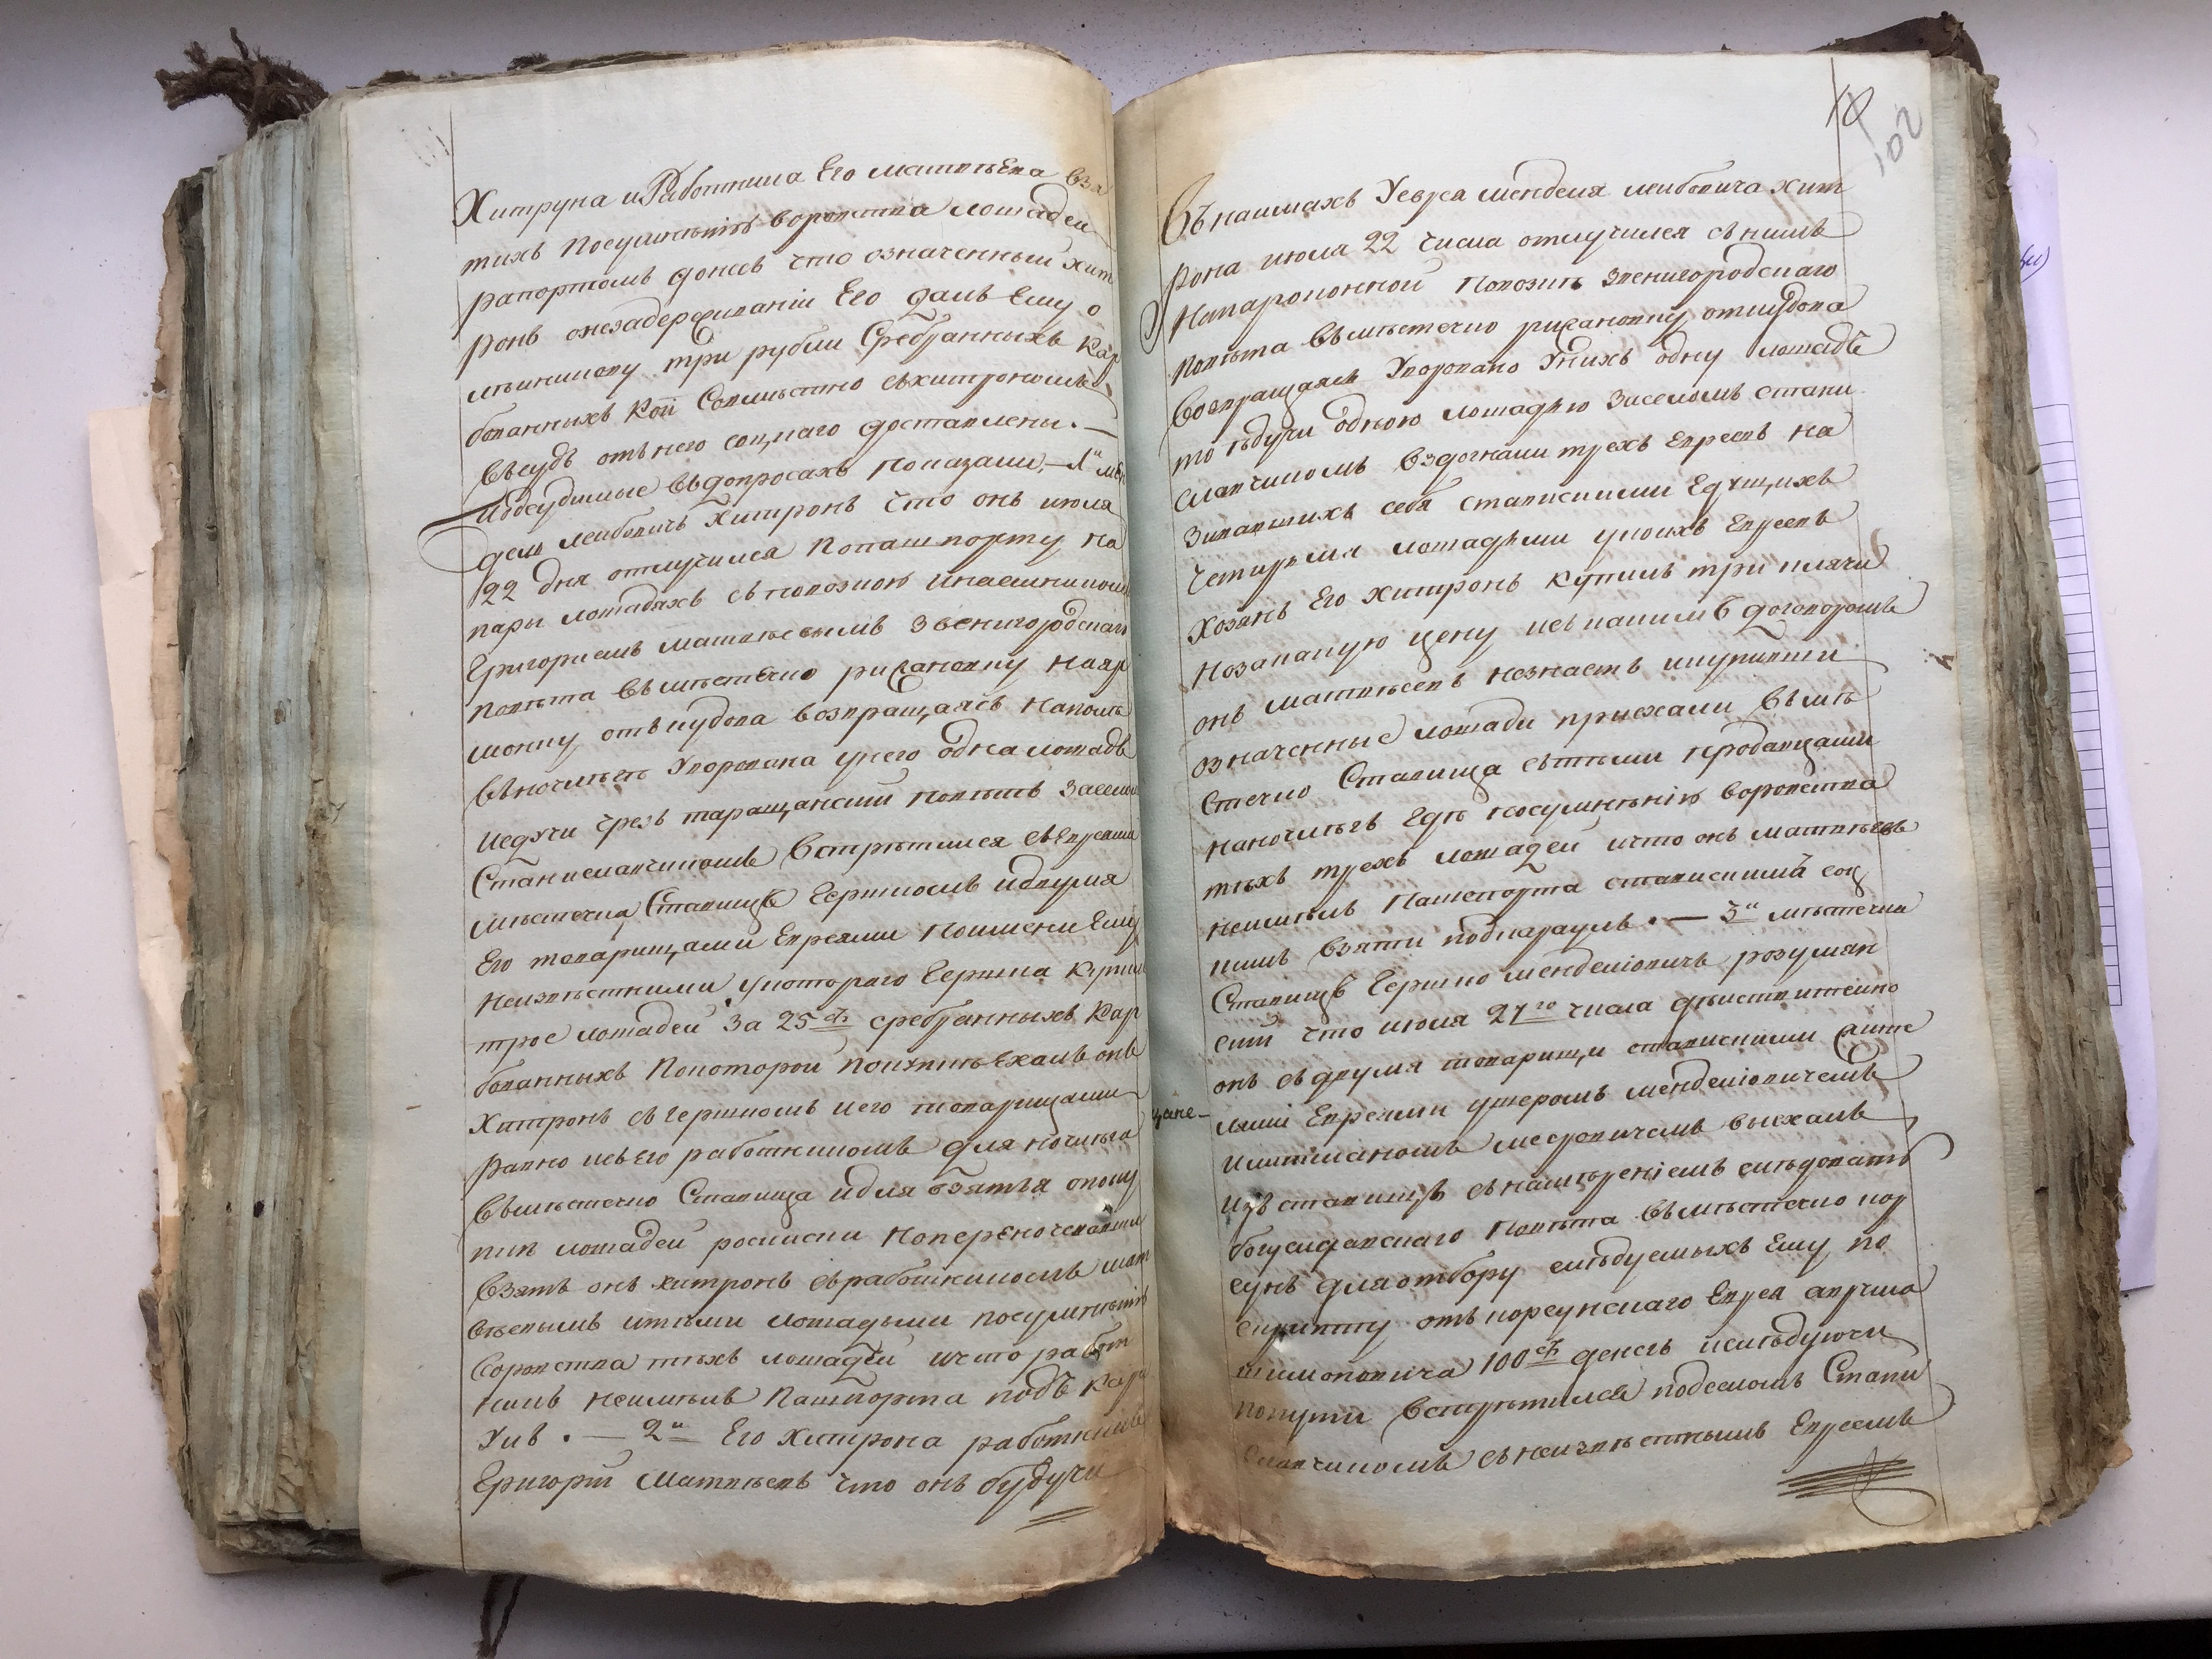 Хитруна и Работника Его матвѣева взя
тихъ Посумнѣнiю воровства лошадей
рапортомъ донесъ что означенный хит
ронъ онезадержиланiи Его далъ Ему о
три рубли Сребранныхъ Кар
бованныхъ Кои Совмѣстно съхитрономъ
Въсудъ отъ него соцкаго доставлены. —
Подсудимые въдопросахъ показали, — 1й мен
дель леибовичъ Хитронъ что онъ июля
22 дня отлучился Попашпорту на
пары лошадяхъ съ повозкою инаемникомъ
Григориемъ матвѣевымъ Звенигородскаго
повѣта въмѣстечко рижановку наяр
монку отъкудова возвращаясь наполѣ
въночлѣгѣ Уворована унего одна лошадь
иедучи чрезъ таращанский повѣтъ засело
Станиславчикомъ встрѣтился съЕвреями
мѣстечка Ставищъ Гершкомъ идвумя
Его товарищами Евреями Поимени Ему
неизвѣстними укоторого Гершка купил
трое лошадей за 25 ть сребранныхъ Кар
бованныхъ Покоторой покупкѣ Ехалъ онъ
Хитронъ съ гершкомъ иего товарищами
равно исъЕго работникомъ для ночлега
Въмѣстечко Ставища идля взятья опоку
пки лошадей росписки ноперѣночевавши
Взятъ онъ хитронъ съработникомъ мат
вѣевымъ итѣми лошадьми посумнѣнiю
воровства тѣхъ лошадей ичто работ
никъ неимѣлъ Пашпорта подъ кара
улъ. — 2й Его Хитрона работникъ
Григорiй Матвѣевъ что онъ будучи
10
102
Въ наимахъ Уевреа менделя леибовича хит
рона июля 22 числа отлучился съ нимъ
Напароконной Повозкѣ звенигородскаго
повѣта въмѣстечко рижановку откудова
возвращаясь Уворовано Унихъ одну лошадь
то ѣдучи одною лошадью заселомъ стани
славчикомъ вздогнали трехъ Евреевъ на
зивавшихъ себя ставискими Едущихъ
четырмя лошадьми укоихъ Евреевъ
хозяинъ Его Хитронъ купилъ три клячи
Нозакакую цену исъкакимъ договоромъ
онъ матвѣевъ незнаетъ икупивши
означенные лошади приехали въмѣ
стечко Ставища сътѣми продавцами
наночлегъ Гдѣ посумнѣнiю воровства
тѣхъ трехъ лошадей ичто онъ матвѣевъ
неимѣлъ Пашпорта ставискимъ соц
кимъ взяти подкараулъ. — 3й мѣстечка
Ставищъ Гершко менделiовичъ розумян
ский что июля 27го числа дѣиствительно
онъ съдвумя товарищи ставискими жите
лями Евреями ушеромъ менделiовичемъ
иицъ Ставищъ съ намѣренiемъ слѣдовать
богуславскаго Повѣта въмѣстечко кор
сунъ дляотбору слѣдуемыхъ Ему по
скрипту отъкорсунскаго Еврея
100 ть денегъ ислѣдуючи
попути встрѣтился подселомъ Стани
славчикомъ съ неизвѣстнымъ Евреемъ